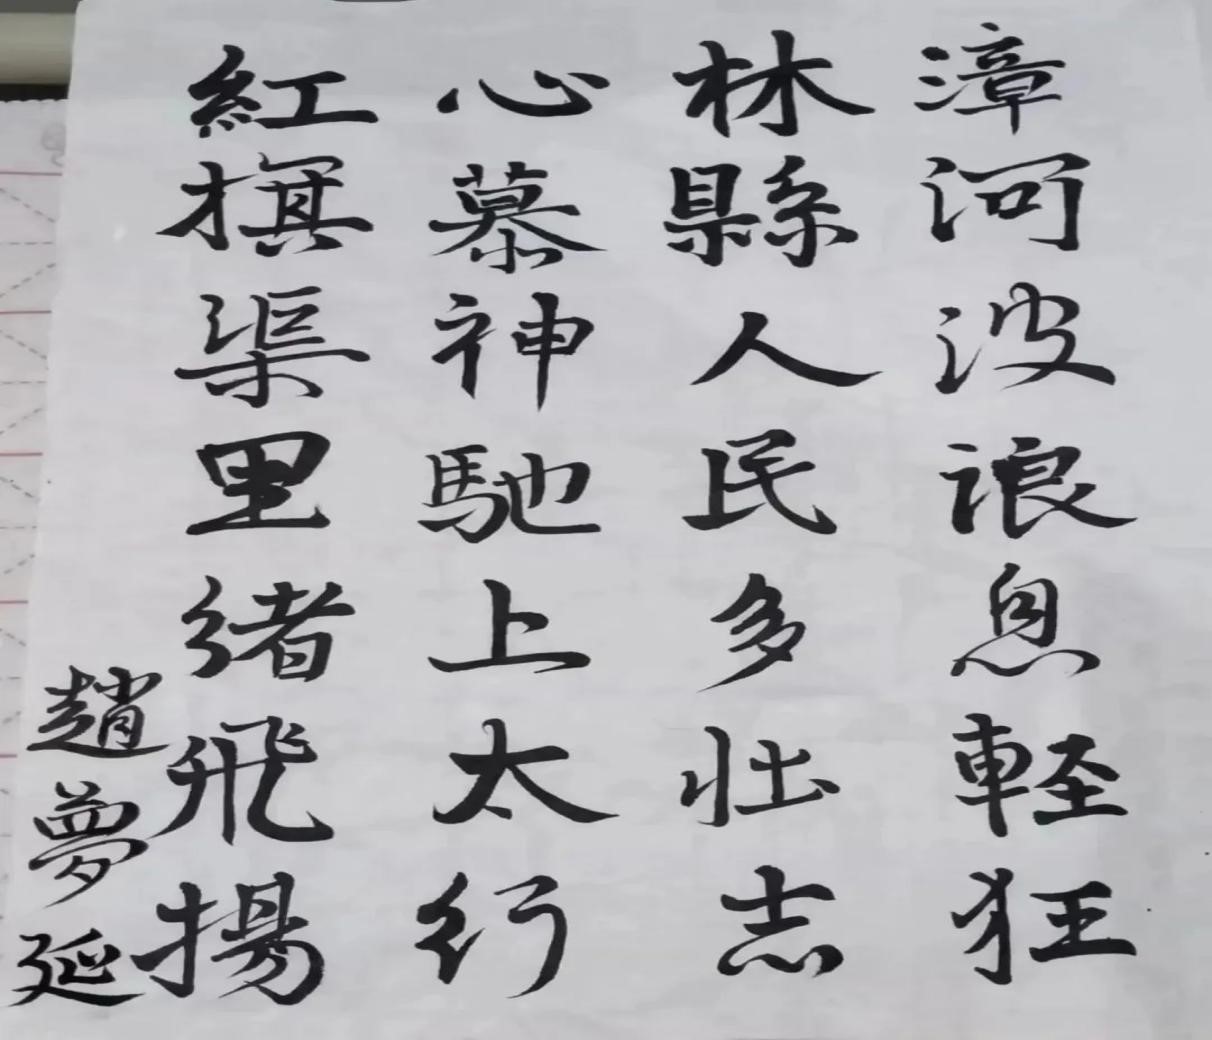 漳河波浪息輕狂
林縣人民多壮志
心慕神馳上太行
紅旗渠里緒飛揚
趙夢延